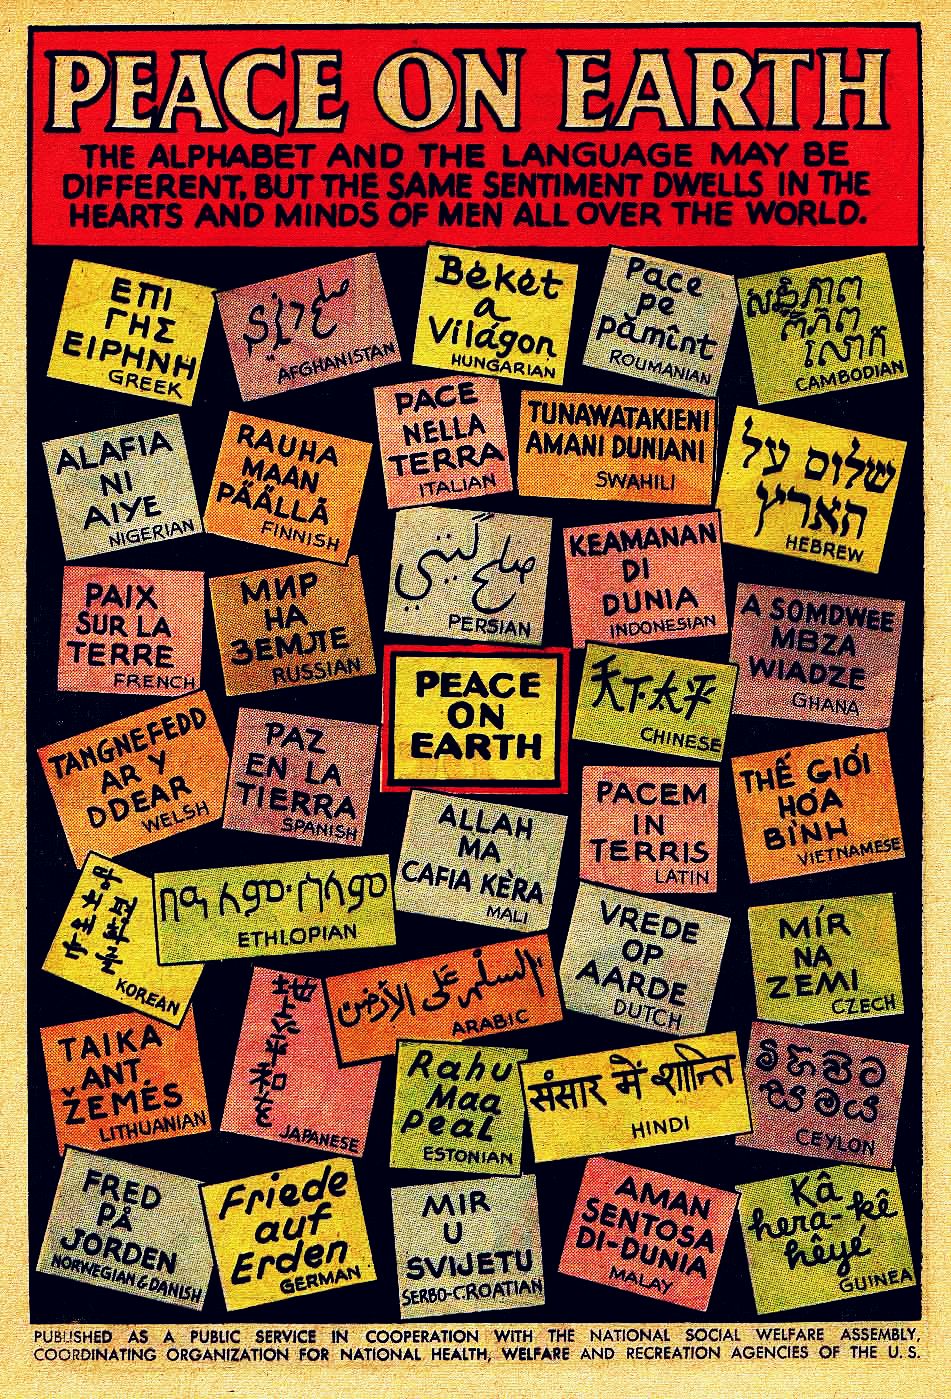 PEACE ON EARTH
THE ALPHABET AND THE LANGUAGE MAY BE
DIFFERENT, BUT THE SAME SENTIMENT DWELLS IN THE
HEARTS AND MINDS OF MEN ALL OVER THE WORLD.
ΕΠΙ
ΓΗΣ
ΕΙΡΗΝΗ
GREEK
AFGHANISTAN
Békét
a
Világon
HUNGARIAN
Pace
pe
pămînt
ROUMANIAN
CAMBODIAN
ALAFIA
NI
AIYE
NIGERIAN
RAUHA
MAAN
PÄÄLLÄ
FINNISH
PACE
NELLA
TERRA
ITALIAN
TUNAWATAKIENI
AMANI DUNIANI
SWAHILI
שלום על
הארץ
HEBREW
PAIX
SUR LA
TERRE
FRENCH
МИР
НА
ЗЕМЛЕ
RUSSIAN
صلح گیتی
PERSIAN
KEAMANAN
DI
DUNIA
INDONESIAN
A SOMDWEE
MBZA
WIADZE
GHANA
PEACE
ON
EARTH
天下太平
CHINESE
TANGNEFEDD
AR Y
DDEAR
WELSH
PAZ
EN LA
TIERRA
SPANISH
ALLAH
MA
CAFIA KÈRA
MALI
PACEM
IN
TERRIS
LATIN
THẾ GIỚI
HÒA
BÌNH
VIETNAMESE
KOREAN
በዓለም፡ሰላም
ETHIOPIAN
السلم على الأرض
ARABIC
VREDE
OP
AARDE
DUTCH
MÍR
NA
ZEMI
CZECH
TAIKA
ANT
ŽEMÉS
LITHUANIAN
地
に
平
和
を
JAPANESE
Rahu
Maa
Peal
ESTONIAN
संसार में शान्ति
HINDI
CEYLON
FRED
PÅ
JORDEN
NORWEGIAN & DANISH
Friede
auf
Erden
GERMAN
MIR
U
SVIJETU
SERBO-CROATIAN
AMAN
SENTOSA
DI-DUNIA
MALAY
Kâ
hera-kê
hêyé
GUINEA
PUBLISHED AS A PUBLIC SERVICE IN COOPERATION WITH THE NATIONAL SOCIAL WELFARE ASSEMBLY,
COORDINATING ORGANIZATION FOR NATIONAL HEALTH, WELFARE AND RECREATION AGENCIES OF THE U.S.